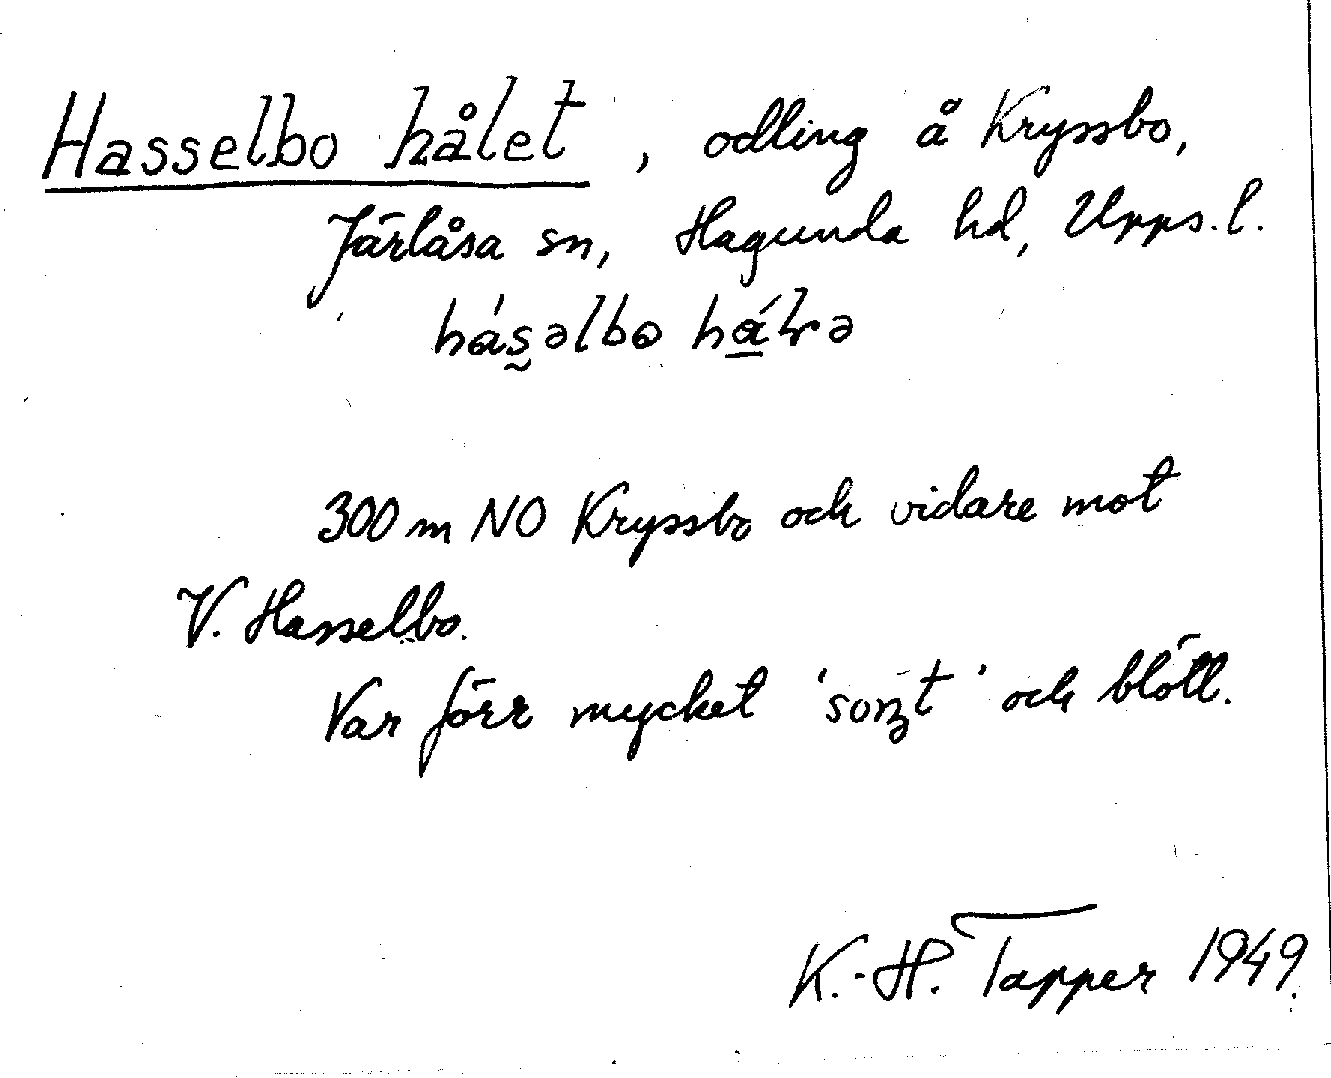 Hasselbo hålet, odling å Kryssbo,
Järlåsa sn, Hagunda hd, Upps.l.
300 m NO Kryssbo och vidare mot
V. Hasselbo.
Var förr mycket 'soʒt' och blött.
K.-H. Tapper 1949.